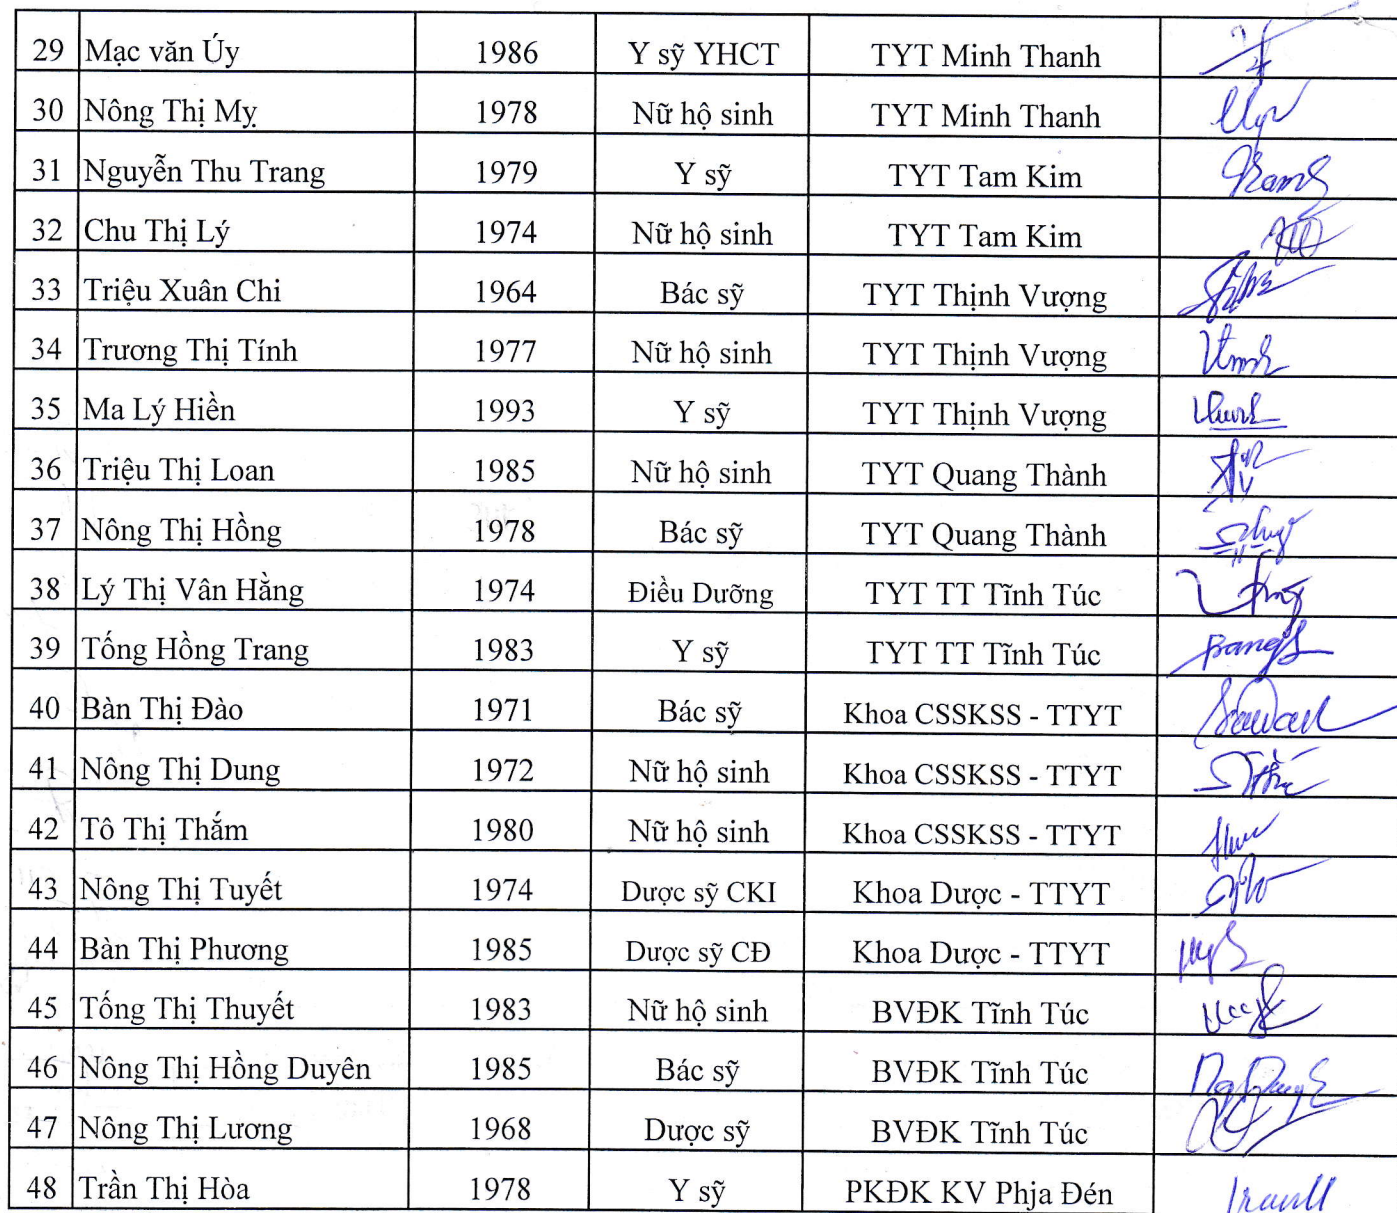 29 Mạc văn Úy 1986 Y sỹ YHCT TYT Minh Thanh
30 Nông Thị Mỵ 1978 Nữ hộ sinh TYT Minh Thanh
31 Nguyễn Thu Trang 1979 Y sỹ TYT Tam Kim
32 Chu Thị Lý 1974 Nữ hộ sinh TYT Tam Kim
33 Triệu Xuân Chi 1964 Bác sỹ TYT Thịnh Vượng
34 Trương Thị Tính 1977 Nữ hộ sinh TYT Thịnh Vượng
35 Ma Lý Hiền 1993 Y sỹ TYT Thịnh Vượng
36 Triệu Thị Loan 1985 Nữ hộ sinh TYT Quang Thành
37 Nông Thị Hồng 1978 Bác sỹ TYT Quang Thành
38 Lý Thị Vân Hằng 1974 Điều Dưỡng TYT TT Tĩnh Túc
39 Tống Hồng Trang 1983 Y sỹ TYT TT Tĩnh Túc
40 Bàn Thị Đào 1971 Bác sỹ Khoa CSSKSS - TTYT
41 Nông Thị Dung 1972 Nữ hộ sinh Khoa CSSKSS - TTYT
42 Tô Thị Thắm 1980 Nữ hộ sinh Khoa CSSKSS - TTYT
43 Nông Thị Tuyết 1974 Dược sỹ CKI Khoa Dược - TTYT
44 Bàn Thị Phương 1985 Dược sỹ CĐ Khoa Dược - TTYT
45 Tống Thị Thuyết 1983 Nữ hộ sinh BVĐK Tĩnh Túc
46 Nông Thị Hồng Duyên 1985 Bác sỹ BVĐK Tĩnh Túc
47 Nông Thị Lương 1968 Dược sỹ BVĐK Tĩnh Túc
48 Trần Thị Hòa 1978 Y sỹ PKĐK KV Phja Đén